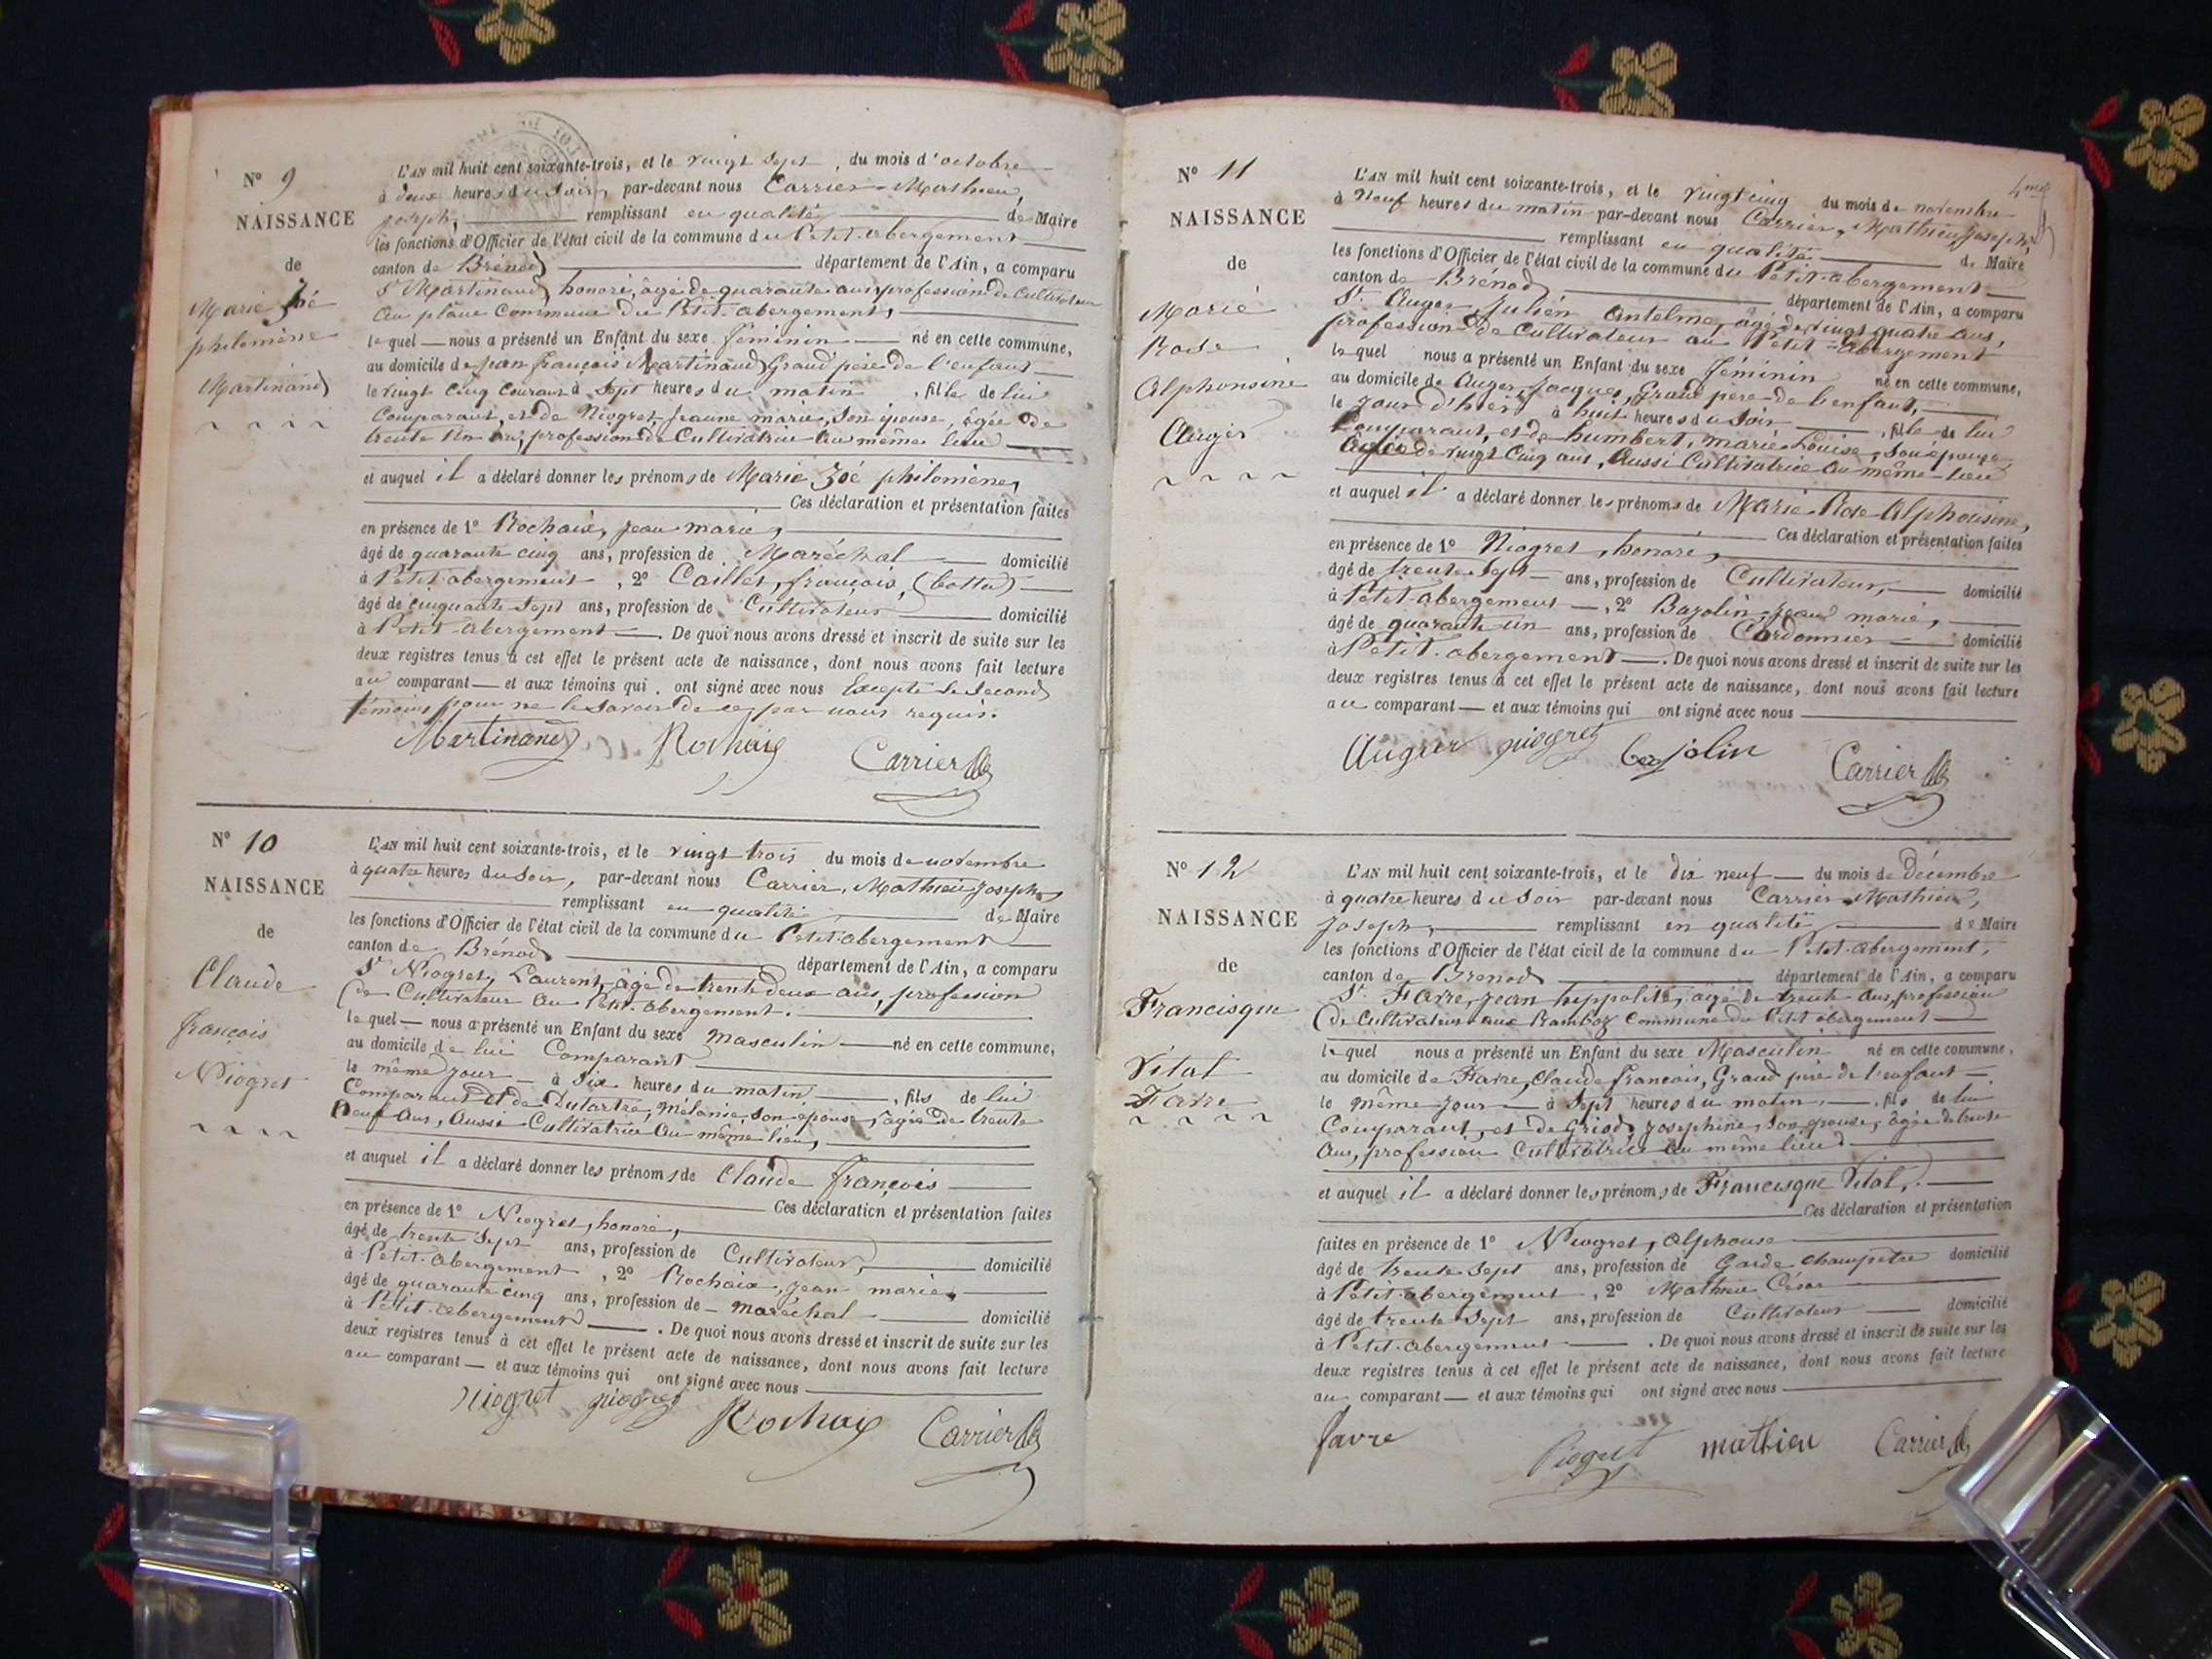 N° 9
NAISSANCE
de
Marie Zoé
philomène
Martinand
L'AN mil huit cent soixante-trois, et le vingt sept, du mois d'octobre
à deux heures du soir, par-devant nous Carrier Mathieu,
joseph, remplissant en qualité de Maire
les fonctions d'Officier de l'état civil de la commune du Petit-abergement
canton de Brénod département de l'Ain, a comparu
Sr Martinand honoré, âgé de quarante ans, profession de Cultivateur
au plâne Commune du Petit-abergement,
lequel nous a présenté un Enfant du sexe féminin né en cette commune,
au domicile de jean françois Martinand Grand père de l'enfant
le vingt cinq courant à sept heures du matin, fille de lui
Comparant, et de Niogret, jeanne marie, son épouse, âgée de
trente un ans, profession de Cultivatrice au même lieu
et auquel il a déclaré donner les prénoms de Marie Zoé philomène,
Ces déclaration et présentation faites
en présence de 1° Rochaix, jean marie,
âgé de quarante cinq ans, profession de Maréchal domicilié
à Petit abergement, 2° Caillet, françois,
âgé de cinquante sept ans, profession de Cultivateur domicilié
à Petit-abergement. De quoi nous avons dressé et inscrit de suite sur les
deux registres tenus à cet effet le présent acte de naissance, dont nous avons fait lecture
au comparant et aux témoins qui ont signé avec nous Excepté le second
témoin pour ne le savoir de ce par nous requis.
Martinand Rochaix Carrier
N° 10
NAISSANCE
de
Claude
françois
Niogret
L'AN mil huit cent soixante-trois, et le vingt trois du mois de novembre
à quatre heures du soir, par-devant nous Carrier, Mathieu joseph,
remplissant en qualité de Maire
les fonctions d'Officier de l'état civil de la commune du Petit-abergement
canton de Brénod département de l'Ain, a comparu
Sr Niogret, Laurent, âgé de trente deux ans, profession
de Cultivateur au Petit-abergement.
lequel nous a présenté un Enfant du sexe masculin né en cette commune,
au domicile de lui Comparant
le même jour à six heures du matin, fils de lui
Comparant et de Dutartre, mélanie, son épouse, âgée de trente
neuf ans, Aussi Cultivatrice au même lieu,
et auquel il a déclaré donner les prénoms de Claude françois
Ces déclaration et présentation faites
en présence de 1° Niogret, honoré,
âgé de trente sept ans, profession de Cultivateur, domicilié
à Petit-abergement, 2° Rochaix, jean marie,
âgé de quarante cinq ans, profession de maréchal domicilié
à Petit-abergement. De quoi nous avons dressé et inscrit de suite sur les
deux registres tenus à cet effet le présent acte de naissance, dont nous avons fait lecture
au comparant et aux témoins qui ont signé avec nous
niogret niogret Rochaix Carrier
N° 11
NAISSANCE
de
Marie
Rose
Alphonsine
Auger
L'AN mil huit cent soixante-trois, et le vingt cinq du mois de novembre
à Neuf heures du matin par-devant nous Carrier, Mathieu joseph,
remplissant en qualité de Maire
les fonctions d'Officier de l'état civil de la commune du Petit-abergement
canton de Brénod département de l'Ain, a comparu
Sr Auger, Julien Antelme, âgé de vingt quatre ans,
profession de Cultivateur au Petit-abergement
lequel nous a présenté un Enfant du sexe féminin né en cette commune,
au domicile de Auger, jacques, Grand père de l'enfant,
le jour d'hier à huit heures du soir, fille de lui
Comparant, et de humbert, marie Louise, son épouse,
Agée de vingt cinq ans, Aussi Cultivatrice au même lieu
et auquel il a déclaré donner les prénoms de Marie Rose Alphonsine,
Ces déclaration et présentation faites
en présence de 1° Niogret, honoré,
âgé de trente sept ans, profession de Cultivateur, domicilié
à Petit-abergement, 2° Bajolin, jean marie,
âgé de quarante un ans, profession de Cordonnier domicilié
à Petit-abergement. De quoi nous avons dressé et inscrit de suite sur les
deux registres tenus à cet effet le présent acte de naissance, dont nous avons fait lecture
au comparant et aux témoins qui ont signé avec nous
Auger niogret bajolin Carrier
N° 12
NAISSANCE
de
Francisque
Vital
Favre
L'AN mil huit cent soixante-trois, et le dix neuf du mois de Décembre
à quatre heures du soir par-devant nous Carrier Mathieu,
joseph, remplissant en qualité de Maire
les fonctions d'Officier de l'état civil de la commune du Petit-abergement,
canton de Brenod département de l'Ain, a comparu
Sr Favre, jean hippolite, âgé de trente ans, profession
de Cultivateur aux Ramboz Commune du Petit abergement
lequel nous a présenté un Enfant du sexe Masculin né en cette commune,
au domicile de Favre, Claude francois, Grand père de l'enfant
le même jour à sept heures du matin, fils de lui
Comparant, et de Griod, josephine, son épouse, âgée de trente
ans, profession Cultivatrice au même lieu
et auquel il a déclaré donner les prénoms de Francisque Vital,
Ces déclaration et présentation
faites en présence de 1° Niogret, alphonse
âgé de trente sept ans, profession de Garde champêtre domicilié
à Petit-abergement, 2° Mathieu César
âgé de trente sept ans, profession de Cultivateur domicilié
à Petit-abergement. De quoi nous avons dressé et inscrit de suite sur les
deux registres tenus à cet effet le présent acte de naissance, dont nous avons fait lecture
au comparant et aux témoins qui ont signé avec nous
favre Niogret mathieu Carrier